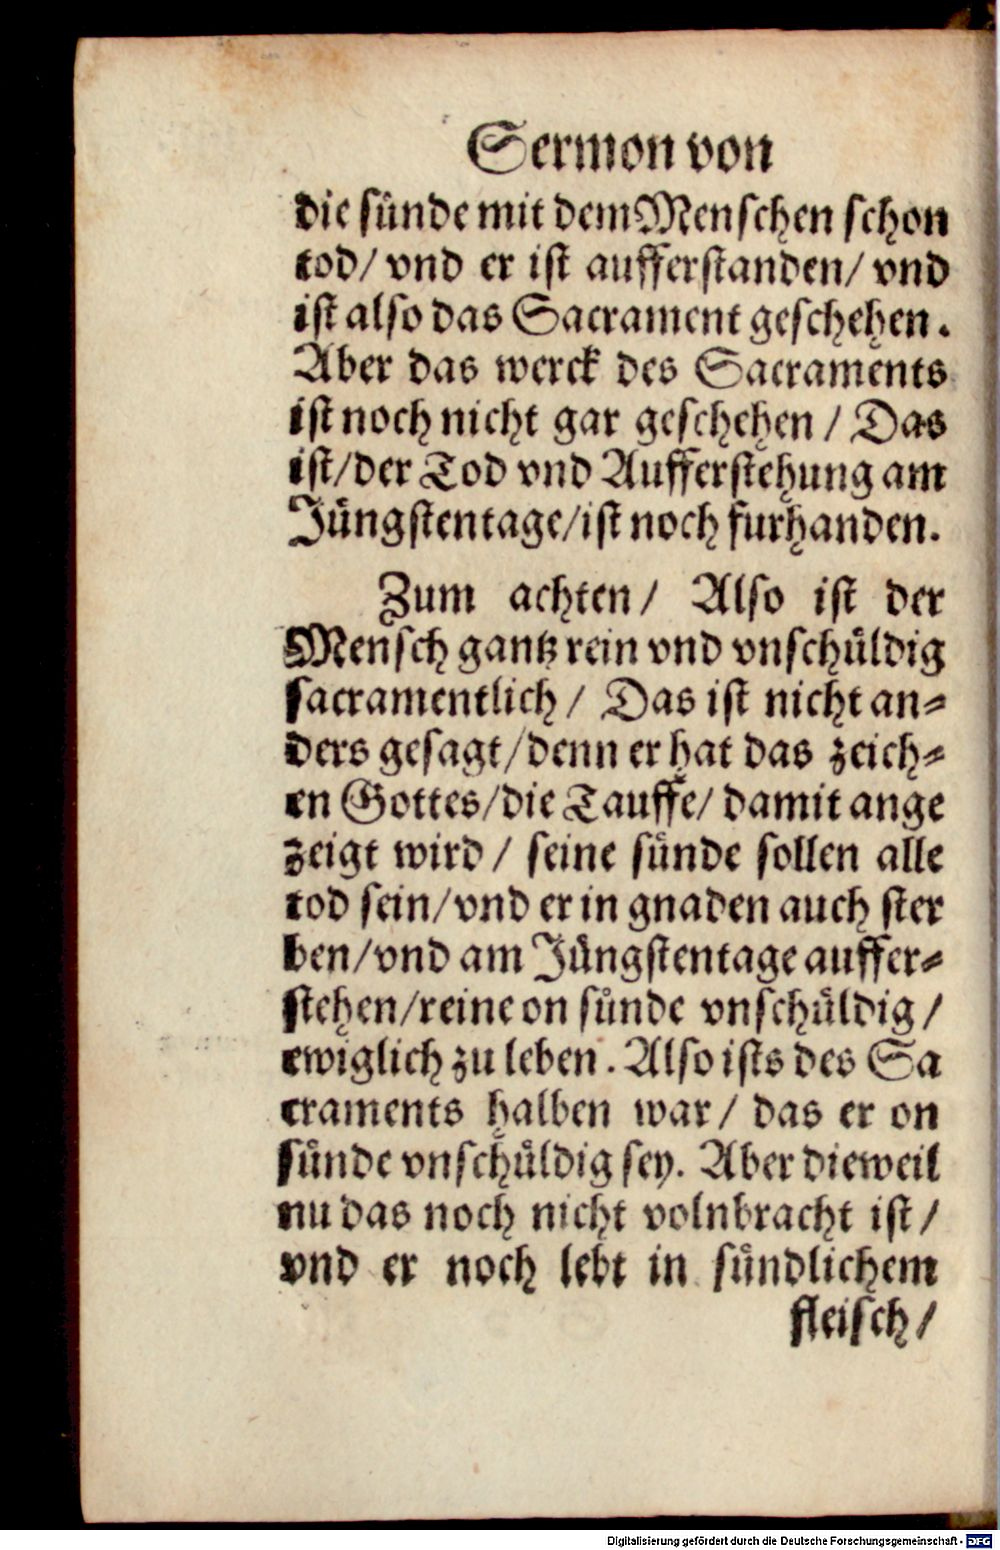 Sermon von
die sünde mit dem Menschen schon
tod/ vnd er ist aufferstanden/ vnd
ist also das Sacrament geschehen.
Aber das werck des Sacraments
ist noch nicht gar geschehen / Das
ist/der Tod vnd Aufferstehung am
Jüngstentage/ist noch furhanden.
Zum achten/ Also ist der
Mensch gantz rein vnd vnschüldig
sacramentlich / Das ist nicht an-
ders gesagt/denn er hat das zeich-
en Gottes/die Tauffe/ damit ange
zeigt wird / seine sünde sollen alle
tod sein/vnd er in gnaden auch ster
ben/vnd am Jüngstentage auffer-
stehen/reine on sünde vnschüldig /
ewiglich zu leben. Also ists des Sa
craments halben war/ das er on
sünde vnschüldig sey. Aber dieweil
nu das noch nicht volnbracht ist /
vnd er noch lebt in sündlichem
fleisch /
Digitalisierung gefördert durch die Deutsche Forschungsgemeinschaft - DFG